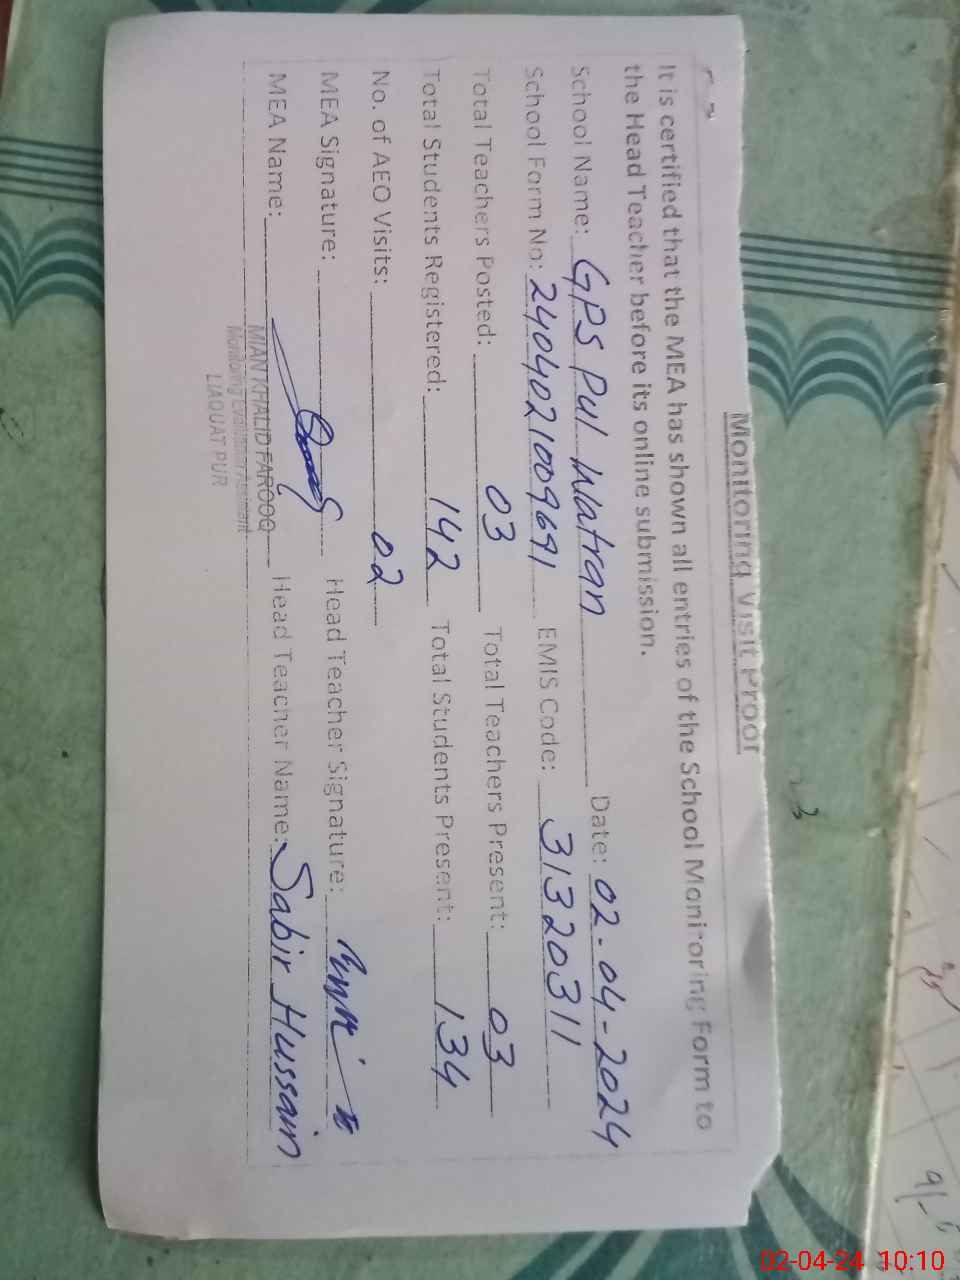 Monitoring Visit Proof
It is certified that the MEA has shown all entries of the School Monitoring Form to
the Head Teacher before its online submission.
School Name: GPS Pul Watran Date: 02-04-2024
School Form No: 2404021009691 EMIS Code: 31320311
Total Teachers Posted: 03 Total Teachers Present: 03
Total Students Registered: 142 Total Students Present: 134
No. of AEO Visits: 02
MEA Signature: Head Teacher Signature:
MEA Name: MIAN KHALID FAROOQ Head Teacher Name: Sabir Hussain
Monitoring Evaluation Assistant
LIAQUAT PUR
02-04-24 10:10